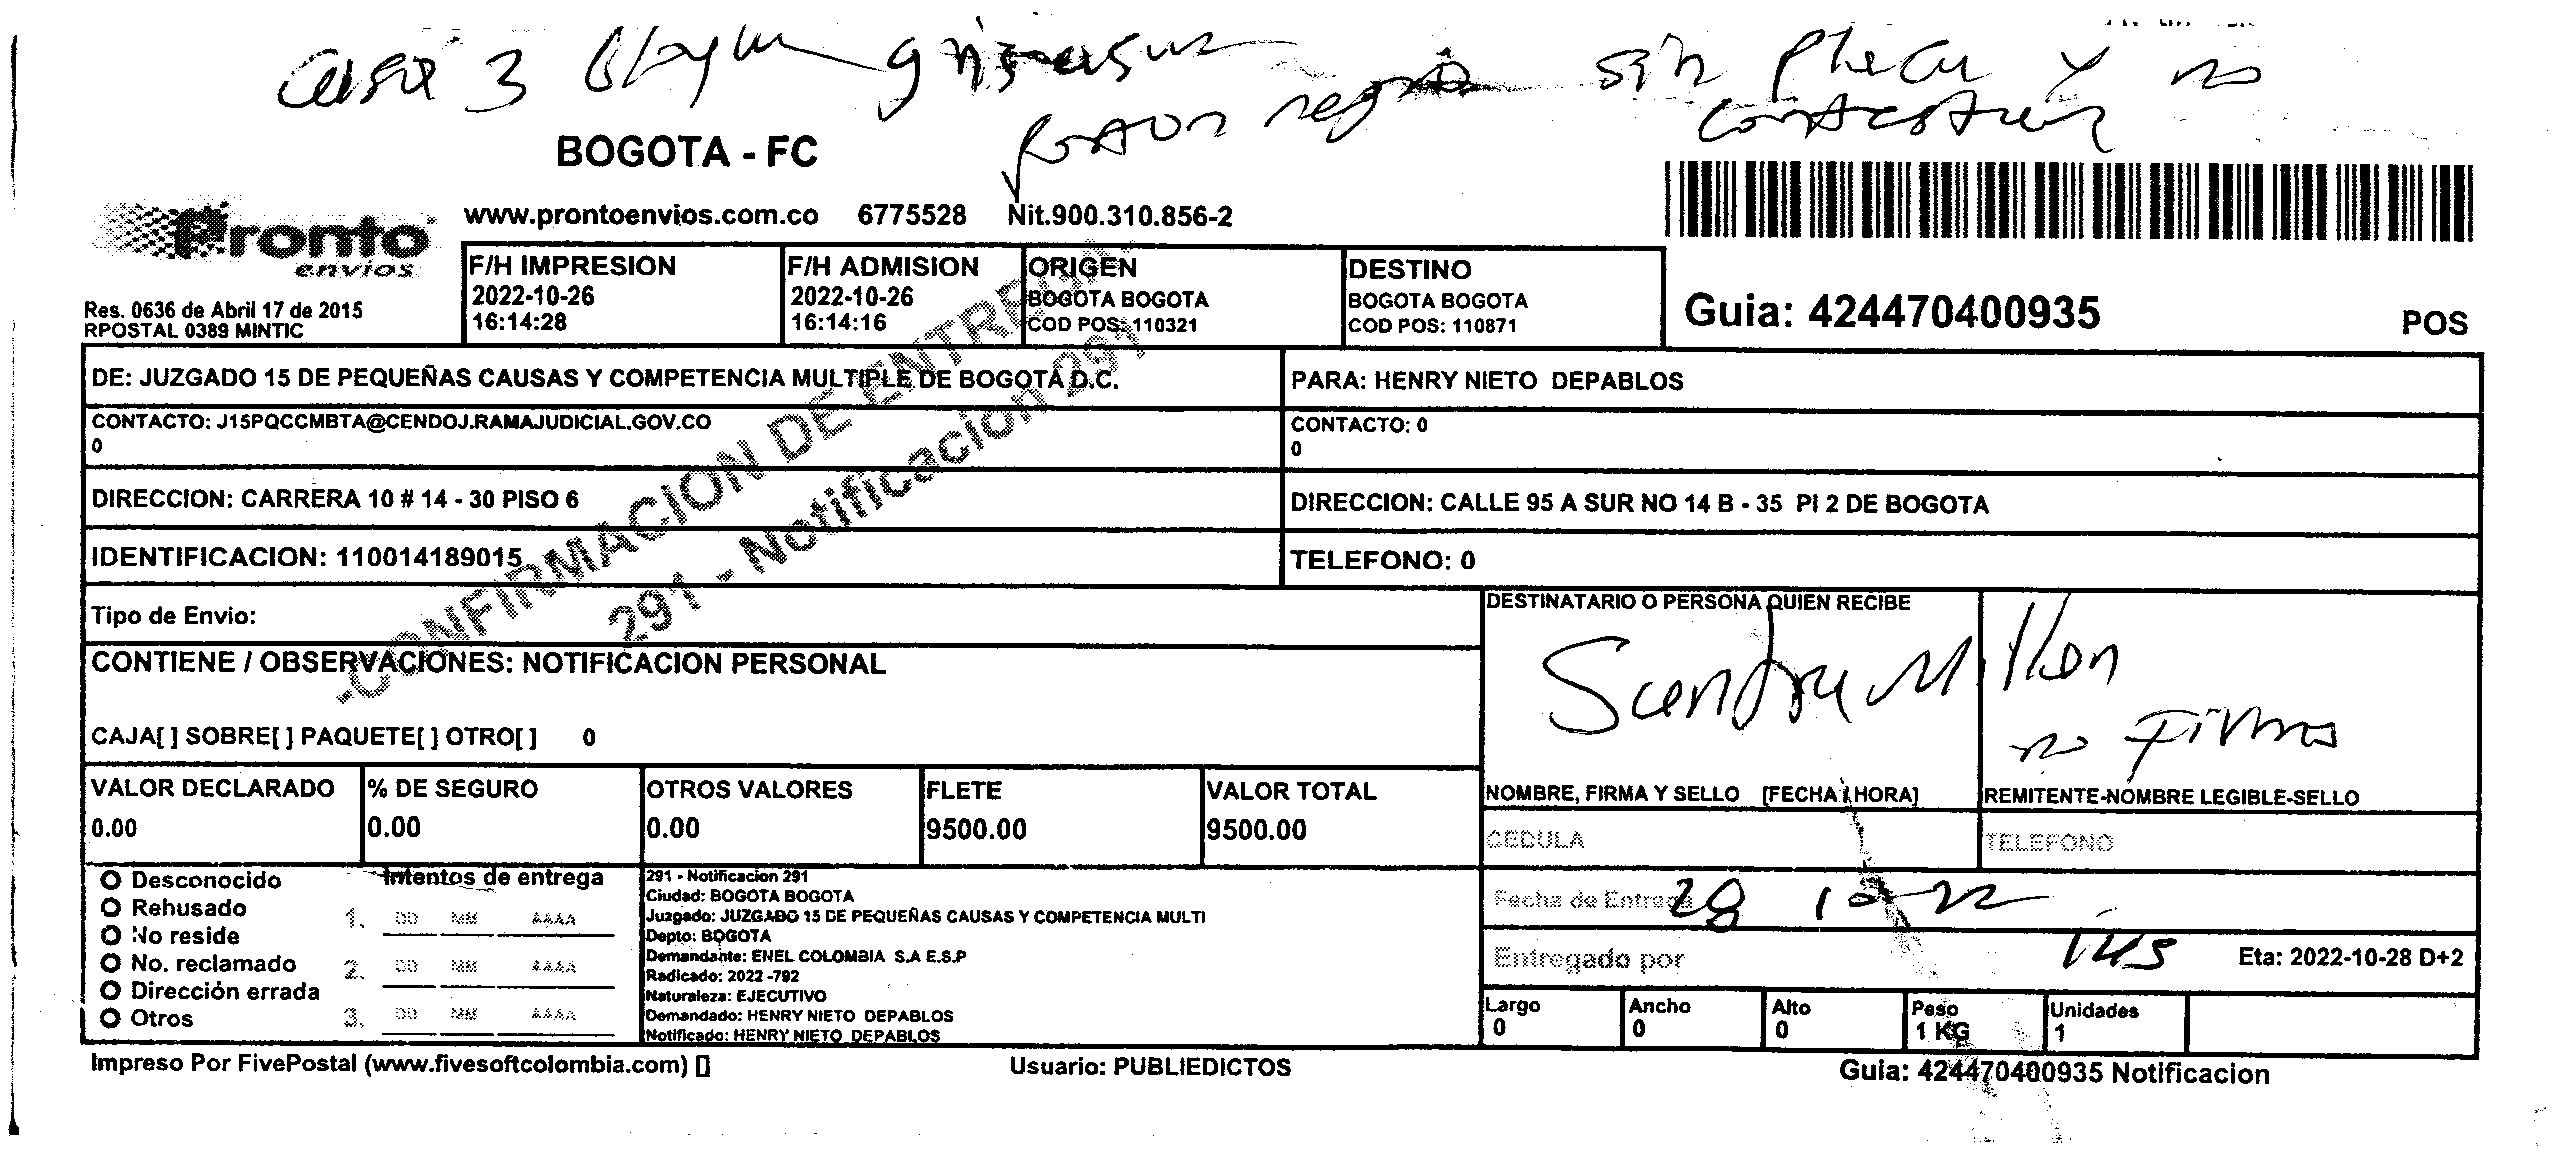 casa 3 Bloque gris sin placa y no
porton negro contador
BOGOTA - FC
www.prontoenvios.com.co 6775528 Nit.900.310.856-2
Pronto
envios
Res. 0636 de Abril 17 de 2015
RPOSTAL 0389 MINTIC
F/H IMPRESION
2022-10-26
16:14:28
F/H ADMISION
2022-10-26
16:14:16
ORIGEN
BOGOTA BOGOTA
COD POS: 110321
DESTINO
BOGOTA BOGOTA
COD POS: 110871
Guia: 424470400935
POS
DE: JUZGADO 15 DE PEQUEÑAS CAUSAS Y COMPETENCIA MULTIPLE DE BOGOTÁ D.C.
PARA: HENRY NIETO DEPABLOS
CONTACTO: J15PQCCMBTA@CENDOJ.RAMAJUDICIAL.GOV.CO
0
CONTACTO: 0
0
DIRECCION: CARRERA 10 # 14 - 30 PISO 6
DIRECCION: CALLE 95 A SUR NO 14 B - 35 PI 2 DE BOGOTA
IDENTIFICACION: 110014189015
TELEFONO: 0
-CONFIRMACION DE ENTREGA-
291 - Notificacion 291
Tipo de Envio:
CONTIENE / OBSERVACIONES: NOTIFICACION PERSONAL
CAJA[ ] SOBRE[ ] PAQUETE[ ] OTRO[ ] 0
DESTINATARIO O PERSONA QUIEN RECIBE
Sandra Millan
no firma
NOMBRE, FIRMA Y SELLO [FECHA / HORA]
REMITENTE-NOMBRE LEGIBLE-SELLO
VALOR DECLARADO
0.00
% DE SEGURO
0.00
OTROS VALORES
0.00
FLETE
9500.00
VALOR TOTAL
9500.00
CEDULA
TELEFONO
O Desconocido
O Rehusado
O No reside
O No. reclamado
O Dirección errada
O Otros
Intentos de entrega
1. DD MM AAAA
2. DD MM AAAA
3. DD MM AAAA
291 - Notificacion 291
Ciudad: BOGOTA BOGOTA
Juzgado: JUZGADO 15 DE PEQUEÑAS CAUSAS Y COMPETENCIA MULTI
Depto: BOGOTA
Demandante: ENEL COLOMBIA S.A E.S.P
Radicado: 2022 -792
Naturaleza: EJECUTIVO
Demandado: HENRY NIETO DEPABLOS
Notificado: HENRY NIETO DEPABLOS
Fecha de Entrega 28 10 22
Entregado por 145 Eta: 2022-10-28 D+2
Largo
0
Ancho
0
Alto
0
Peso
1 KG
Unidades
1
Impreso Por FivePostal (www.fivesoftcolombia.com) []
Usuario: PUBLIEDICTOS
Guia: 424470400935 Notificacion